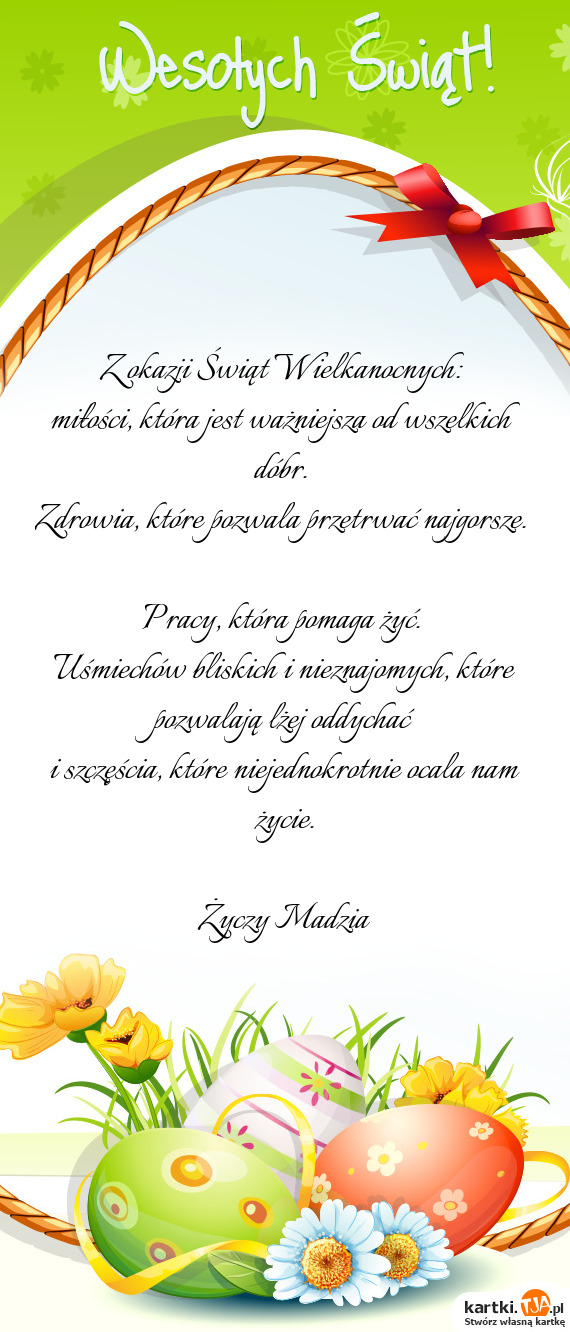 Wesołych Świąt!
Z okazji Świąt Wielkanocnych:
miłości, która jest ważniejsza od wszelkich
dóbr.
Zdrowia, które pozwala przetrwać najgorsze.
Pracy, która pomaga żyć.
Uśmiechów bliskich i nieznajomych, które
pozwalają lżej oddychać
i szczęścia, które niejednokrotnie ocala nam
życie.
Życzy Madzia
kartki.TJA.pl
Stwórz własną kartkę